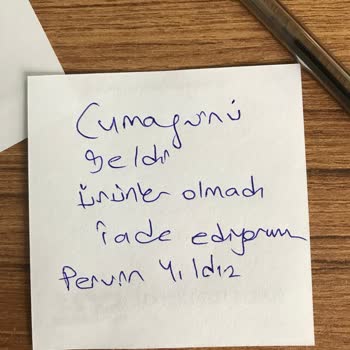 Cumagünü
geldi
ürünler olmadı
iade ediyorum
Pervin Yıldız